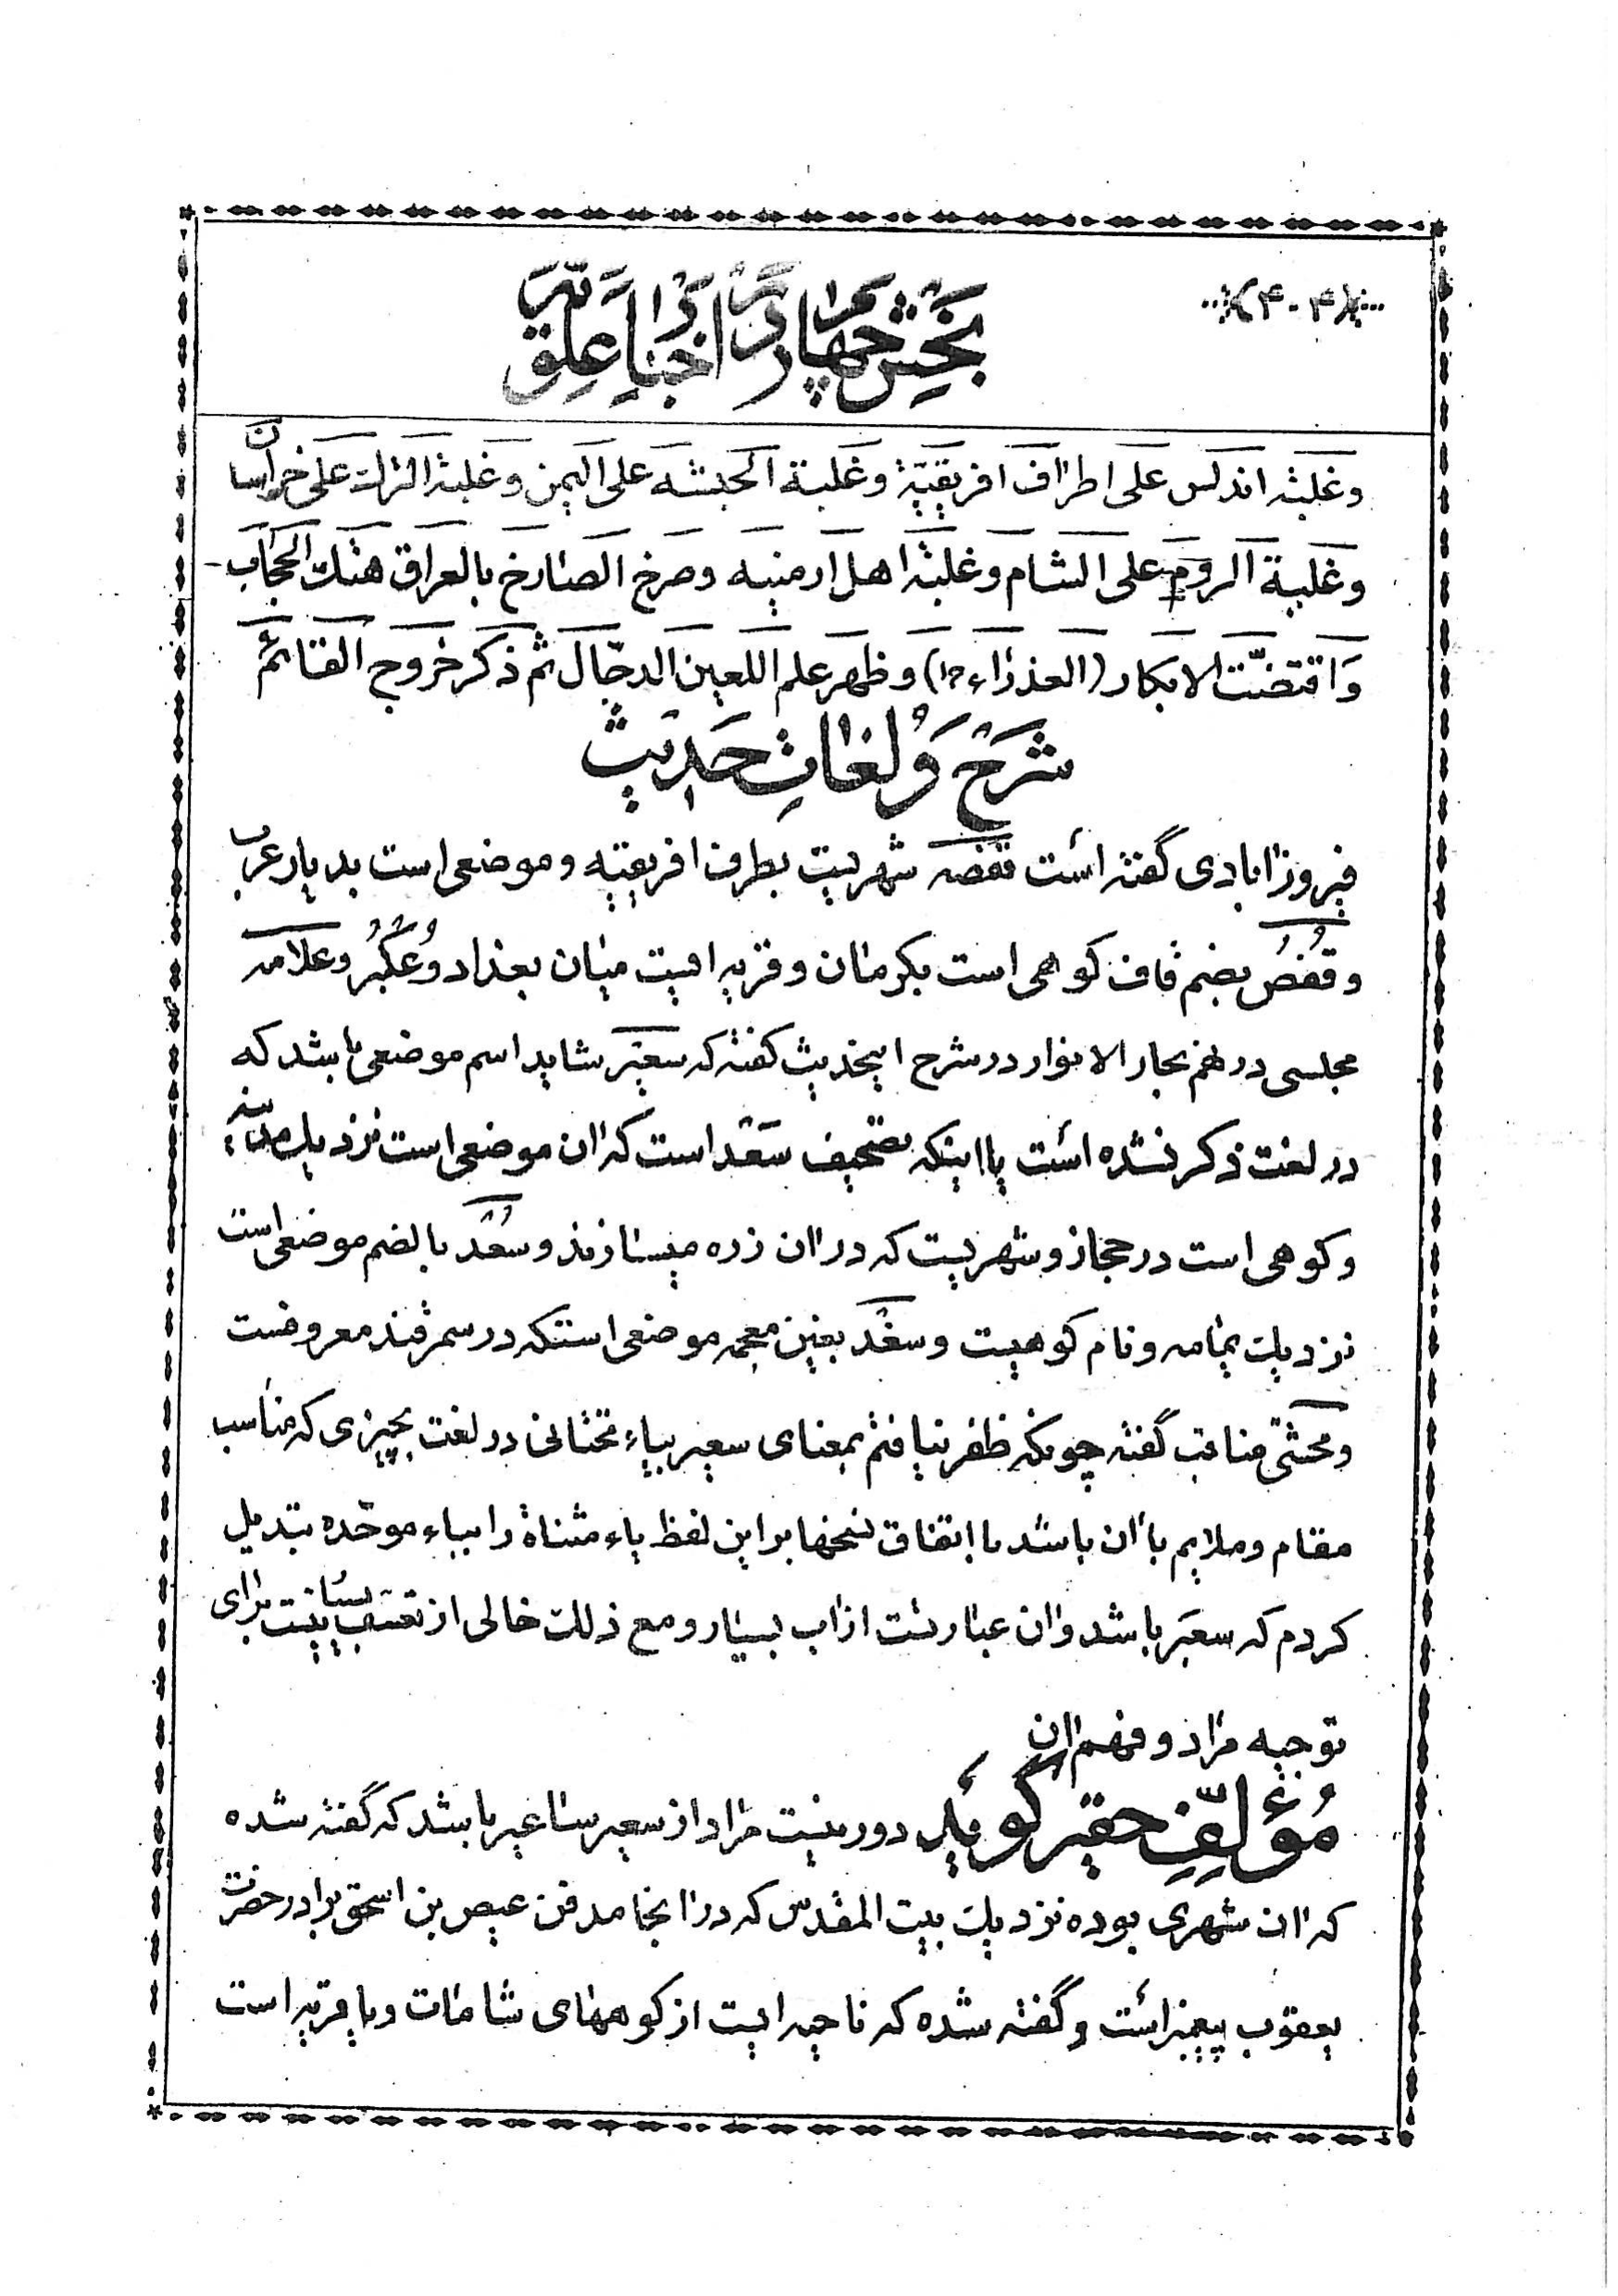 (۴۰۴)
بخش چهارم در اخبار علویه
وغلبة اندلس علی اطراف افریقیّة وغلبة الحبشه علی الیمن وغلبة الترك علی خراسان
وغلبة الروم علی الشام وغلبة اهل ارمنیه وصرخ الصارخ بالعراق هتك الحجاب
وَاقتضّت الابکار (العذراء خ) وظهر علم اللعین الدجّال ثم ذکر خروج القائم
شرح و لغات حدیث
فیروزابادی گفته است قفصه شهریست بطرف افریقیه وموضعی است بدیار عرب
وقُفُص بضم قاف کوهی است بکرمان وقریه ایست میان بغداد وعُکبُر وعلامه
مجلسی در نهم بحار الانوار در شرح اینحدیث گفته که سعبر شاید اسم موضعی باشد که
در لغت ذکر نشده است یا اینکه تصحیف سَعْد است که ان موضعی است نزدیك مدینه
وکوهی است در حجاز وشهریست که در ان زره میسازند وسُعْد بالضم موضعی است
نزدیك یمامه ونام کوهیست وسغد بغین معجمه موضعی استکه در سمرقند معروفست
ومحشّی مناقب گفته چونکه ظفر نیافتم بمعنای سعیر بیاء تحتانی در لغت بچیزی که مناسب
مقام وملایم با ان باشد با اتفاق نسخها بر این لفظ یاء مثناة را بباء موحّده تبدیل
کردم که سعبر باشد وان عبارتست از اب بسیار ومع ذلك خالی از تعسّف نیست برای
توجیه مراد وفهم ان
مُؤلّفِ حقیر گوید دور نیست مراد از سعیر ساعیر باشد که گفته شده
که ان شهری بوده نزدیك بیت المقدس که در انجا مدفن عیص بن اسحق برادر حضرت
یعقوب پیغمبر است وگفته شده که ناحیه ایست از کوههای شامات ویا قریه است